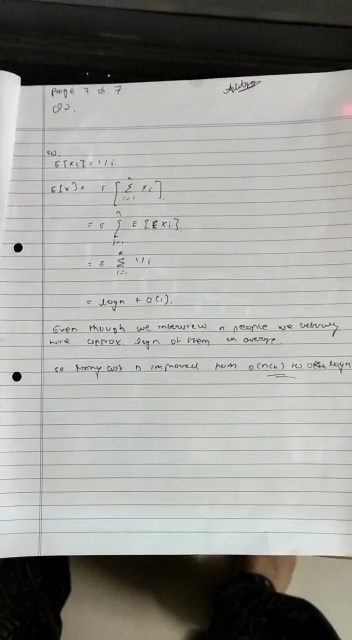 Page 7 of 7
Q2.
so,
E[Xi] = 1/i
E[X] = E [ n Σ i=1 Xi ]
= E n Σ i=1 E[Xi]
= E n Σ i=1 1/i
= logn + O(1).
Even though we interview n people we actually
hire approx. logn of them on average.
so hiring cost is improved from O(nCh) to logn